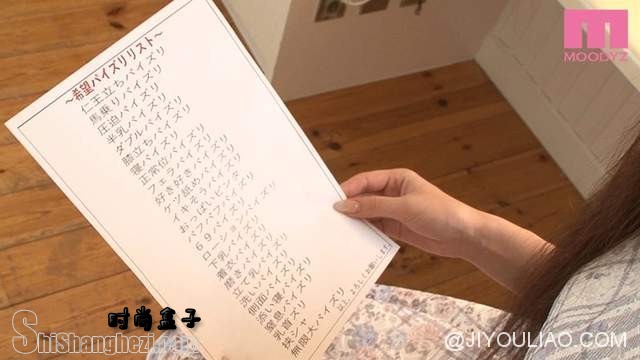 ～希望パイズリリスト～
仁王立ちパイズリ
馬乗りパイズリ
圧迫パイズリ
半乳パイズリ
ダブルパイズリ
膝立ちパイズリ
寝パイズリ
正常位パイズリ
フェラパイズリ
好き好きパイズリ
ケツ舐めパイズリ
イキそうパイズリ
おっぱいビンタ
パフパフパイズリ
６９パイズリ
ローションパイズリ
下乳パイズリ
着衣パイズリ
磨きパイズリ
立て乳パイズリ
洗いパイズリ
側面パイズリ
添い寝パイズリ
窒息パイズリ
乳首ズリ
挟シャ
無限大パイズリ
以上、よろしくお願いします。
MOODYZ
时尚盒子
@JIYOULIAO.COM